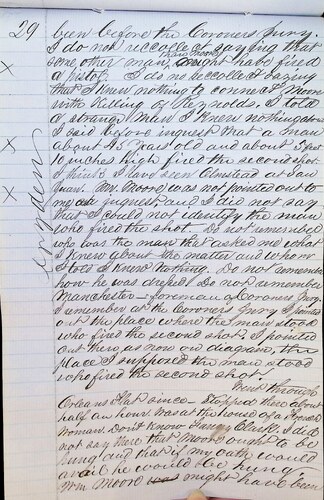 29 been before the Coroners Jury.
I do not reccollect saying that
some other man than Moore ought have fired
a pistol. I do no reccollect saying
that I knew nothing to connect Moore
with killing of Reynolds. I told
a strange man I knew nothing about
I said before inquest that a man
about 45 years old and about 5 feet
10 inches high fired the second shot.
I think I have seen Olmstead at San
Juan. Mr. Moore was not pointed out to
me at inquest and I did not say
that I could not identify the man
who fired the shot. Do not remember
who was the man that asked me what
I knew about the matter and whom
I told I knew nothing. Do not remember
how he was dressed. Do not remember
Manchester - foreman of Coroners Jury.
I remember at the Coroners Jury I pointed
out the place where the man stood
who fired the second shot. I pointed
out then as now on diagram, the
place I supposed the man stood
who fired the second shot.
Went through
Orleans Flat since - stopped there about
half an hour. Was at the house of a
woman. Don't know Fanny Clark. I did
not say there that Moore ought to be
hung and that if my oath would
avail he would be hung.
Wm Moore was might have been